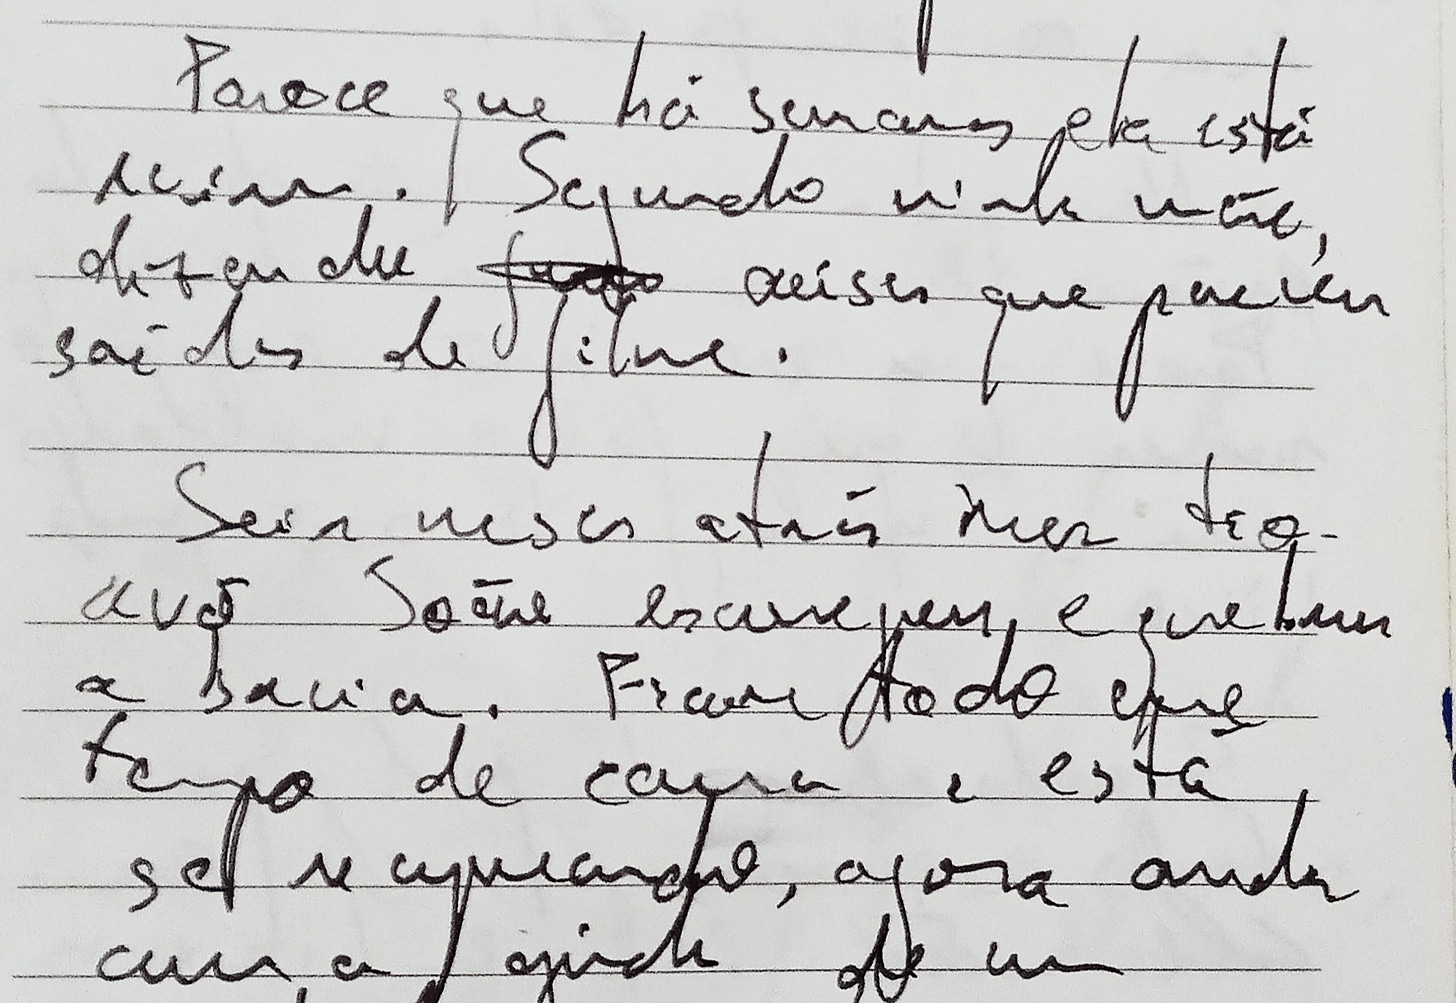 Parece que há semanas ela está
ruim. Segundo minha mãe,
defende coisas que parecem
saídas de filme.
Seis meses atrás meu tio-
avô escorregou e quebrou
a bacia. Ficou todo que
tempo de cama e está
se recuperando, agora anda
com a ajuda de um